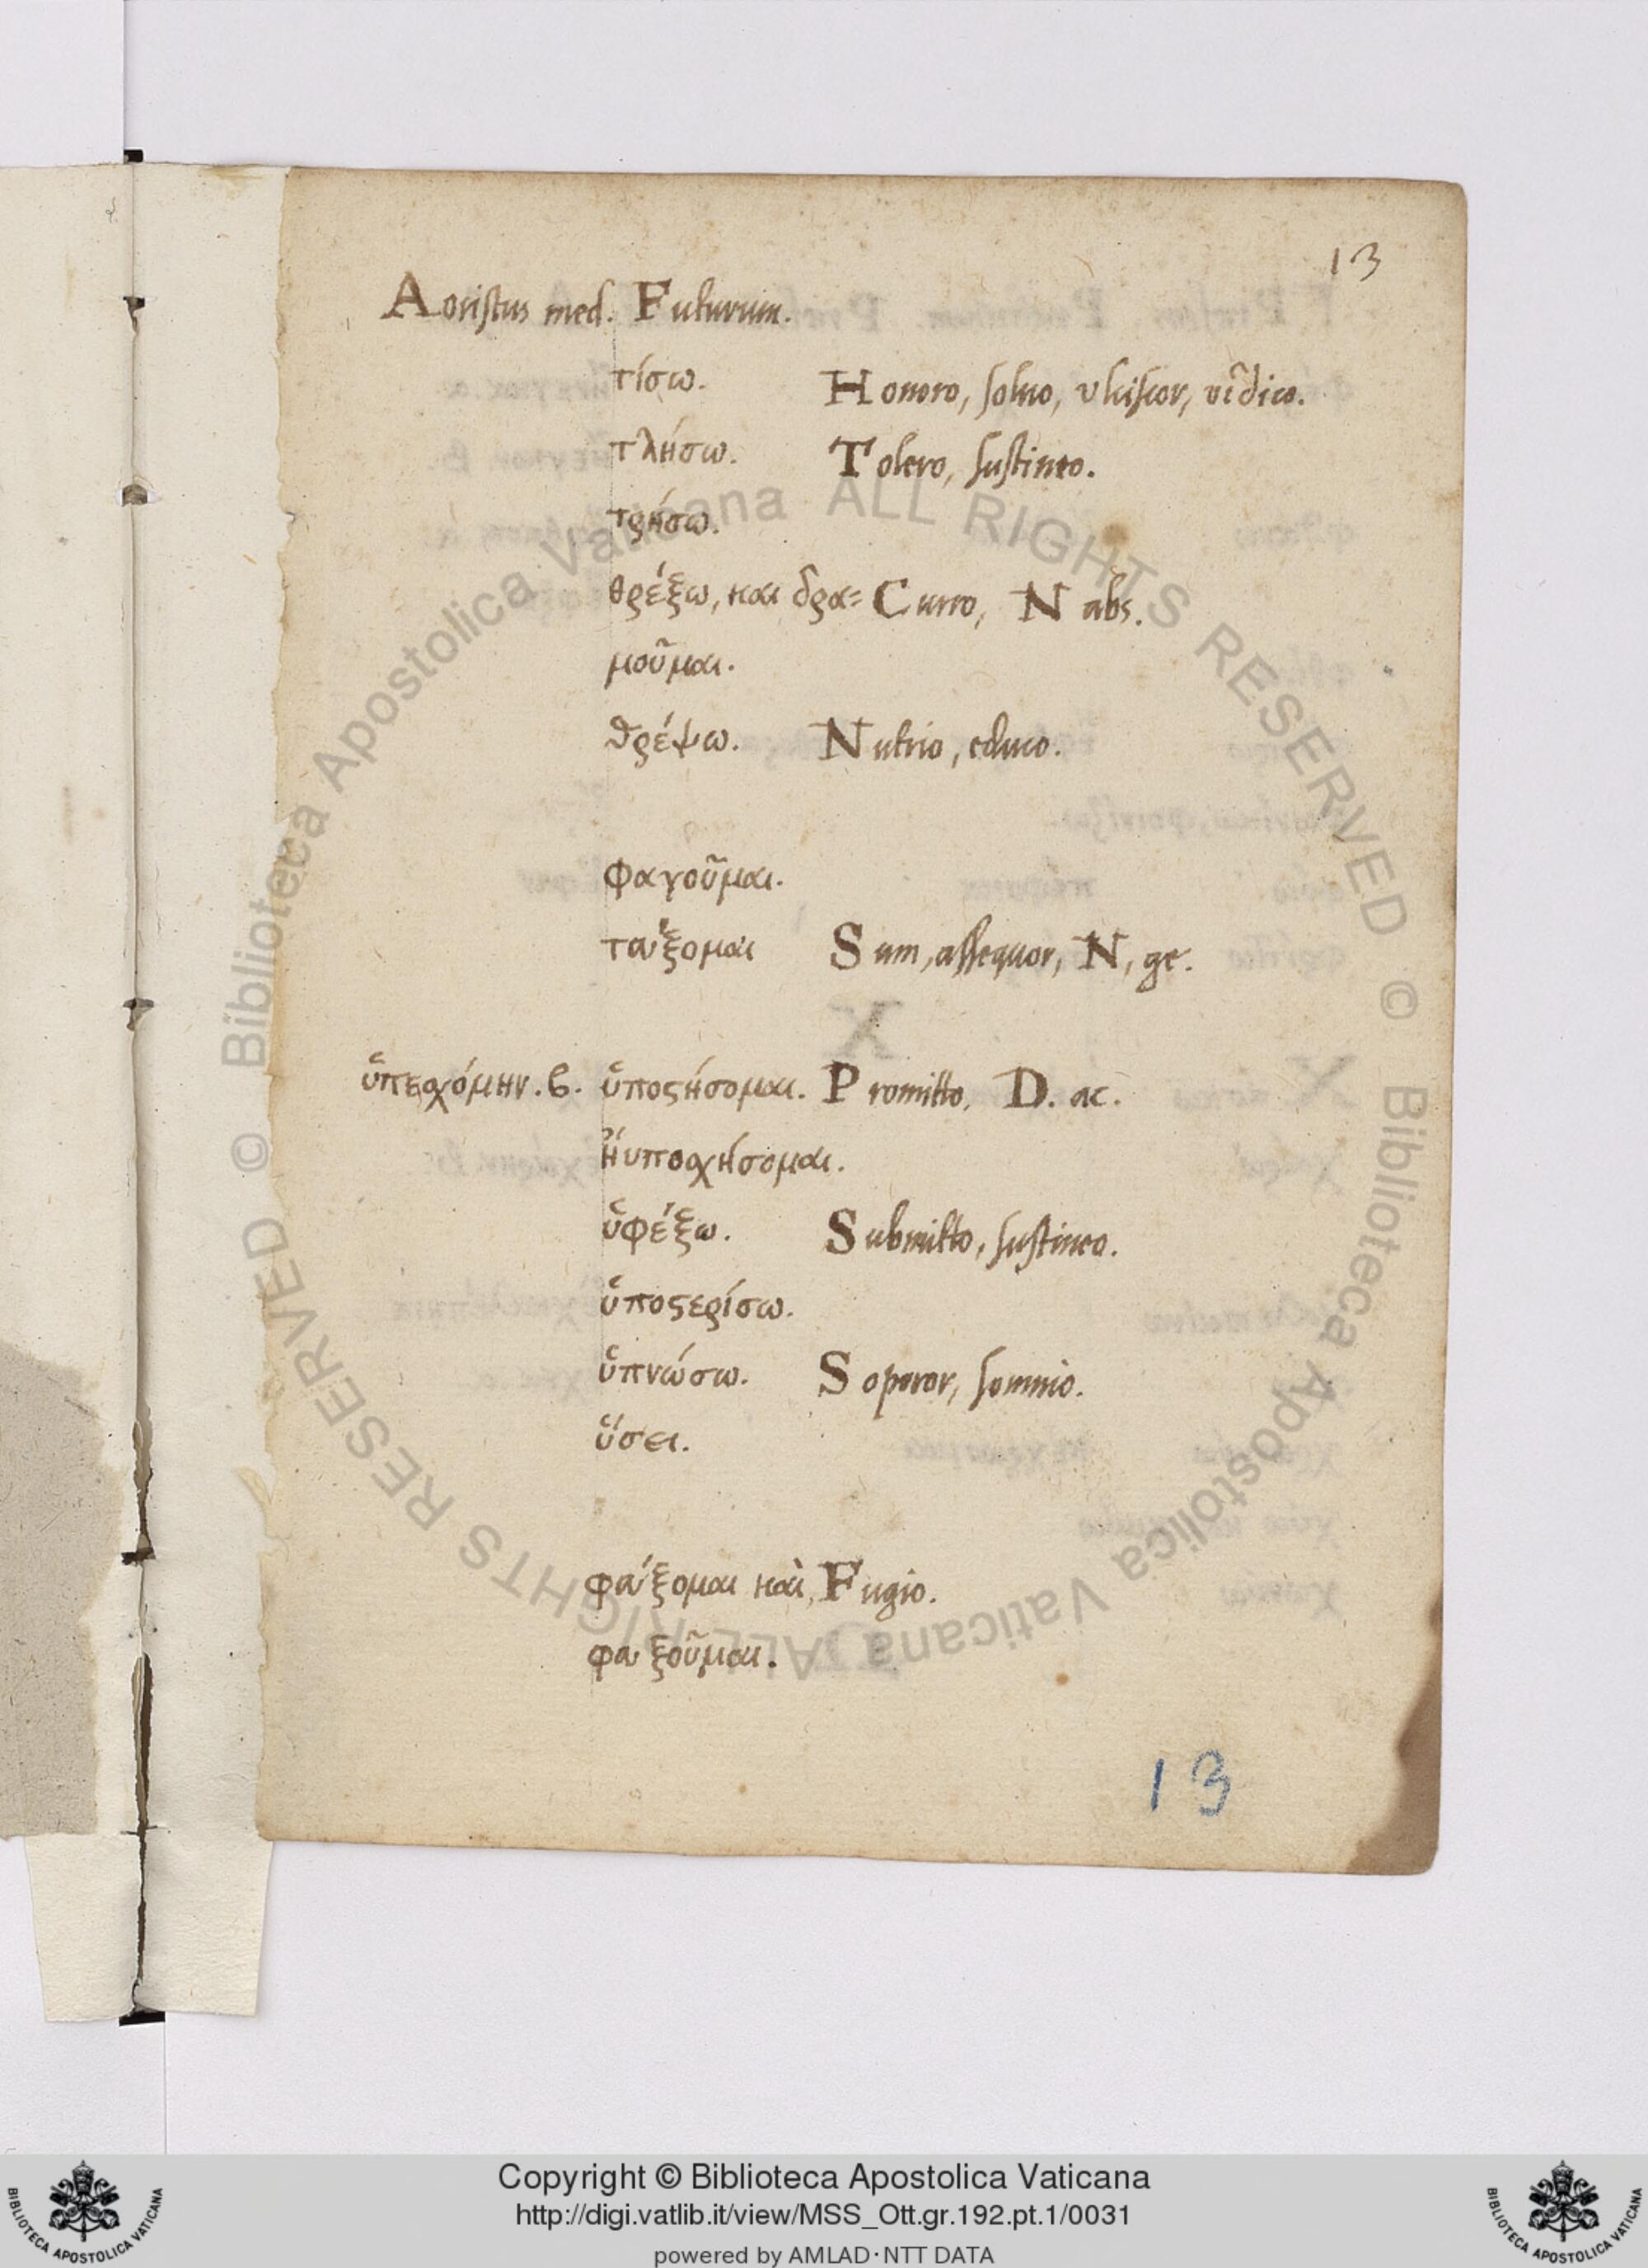 13
Aoristus med. Futurum.
τίσω. Honoro, solvo, vlciscor, vĩdico.
τλήσω. Tolero, sustineo.
τρήσω.
θρέξω, και δρα= Curro, N abs.
μοῦμαι.
θρέψω. Nutrio, educo.
φαγοῦμαι.
ταύξομαι Sum, assequor, N, ge.
ὑπεσχόμην. β. ὑποστήσομαι. Promitto. D. ac.
ἢ υποσχήσομαι.
ὑφέξω. Submitto, sustineo.
ὑποστερίσω.
ὑπνώσω. Soporor, somnio.
ὕσει.
φαύξομαι καὶ Fugio.
φαυξοῦμαι.
13
© Biblioteca Apostolica Vaticana ALL RIGHTS RESERVED © Biblioteca Apostolica Vaticana ALL RIGHTS RESERVED
Copyright © Biblioteca Apostolica Vaticana
http://digi.vatlib.it/view/MSS_Ott.gr.192.pt.1/0031
powered by AMLAD·NTT DATA
BIBLIOTECA APOSTOLICA VATICANA
BIBLIOTECA APOSTOLICA VATICANA